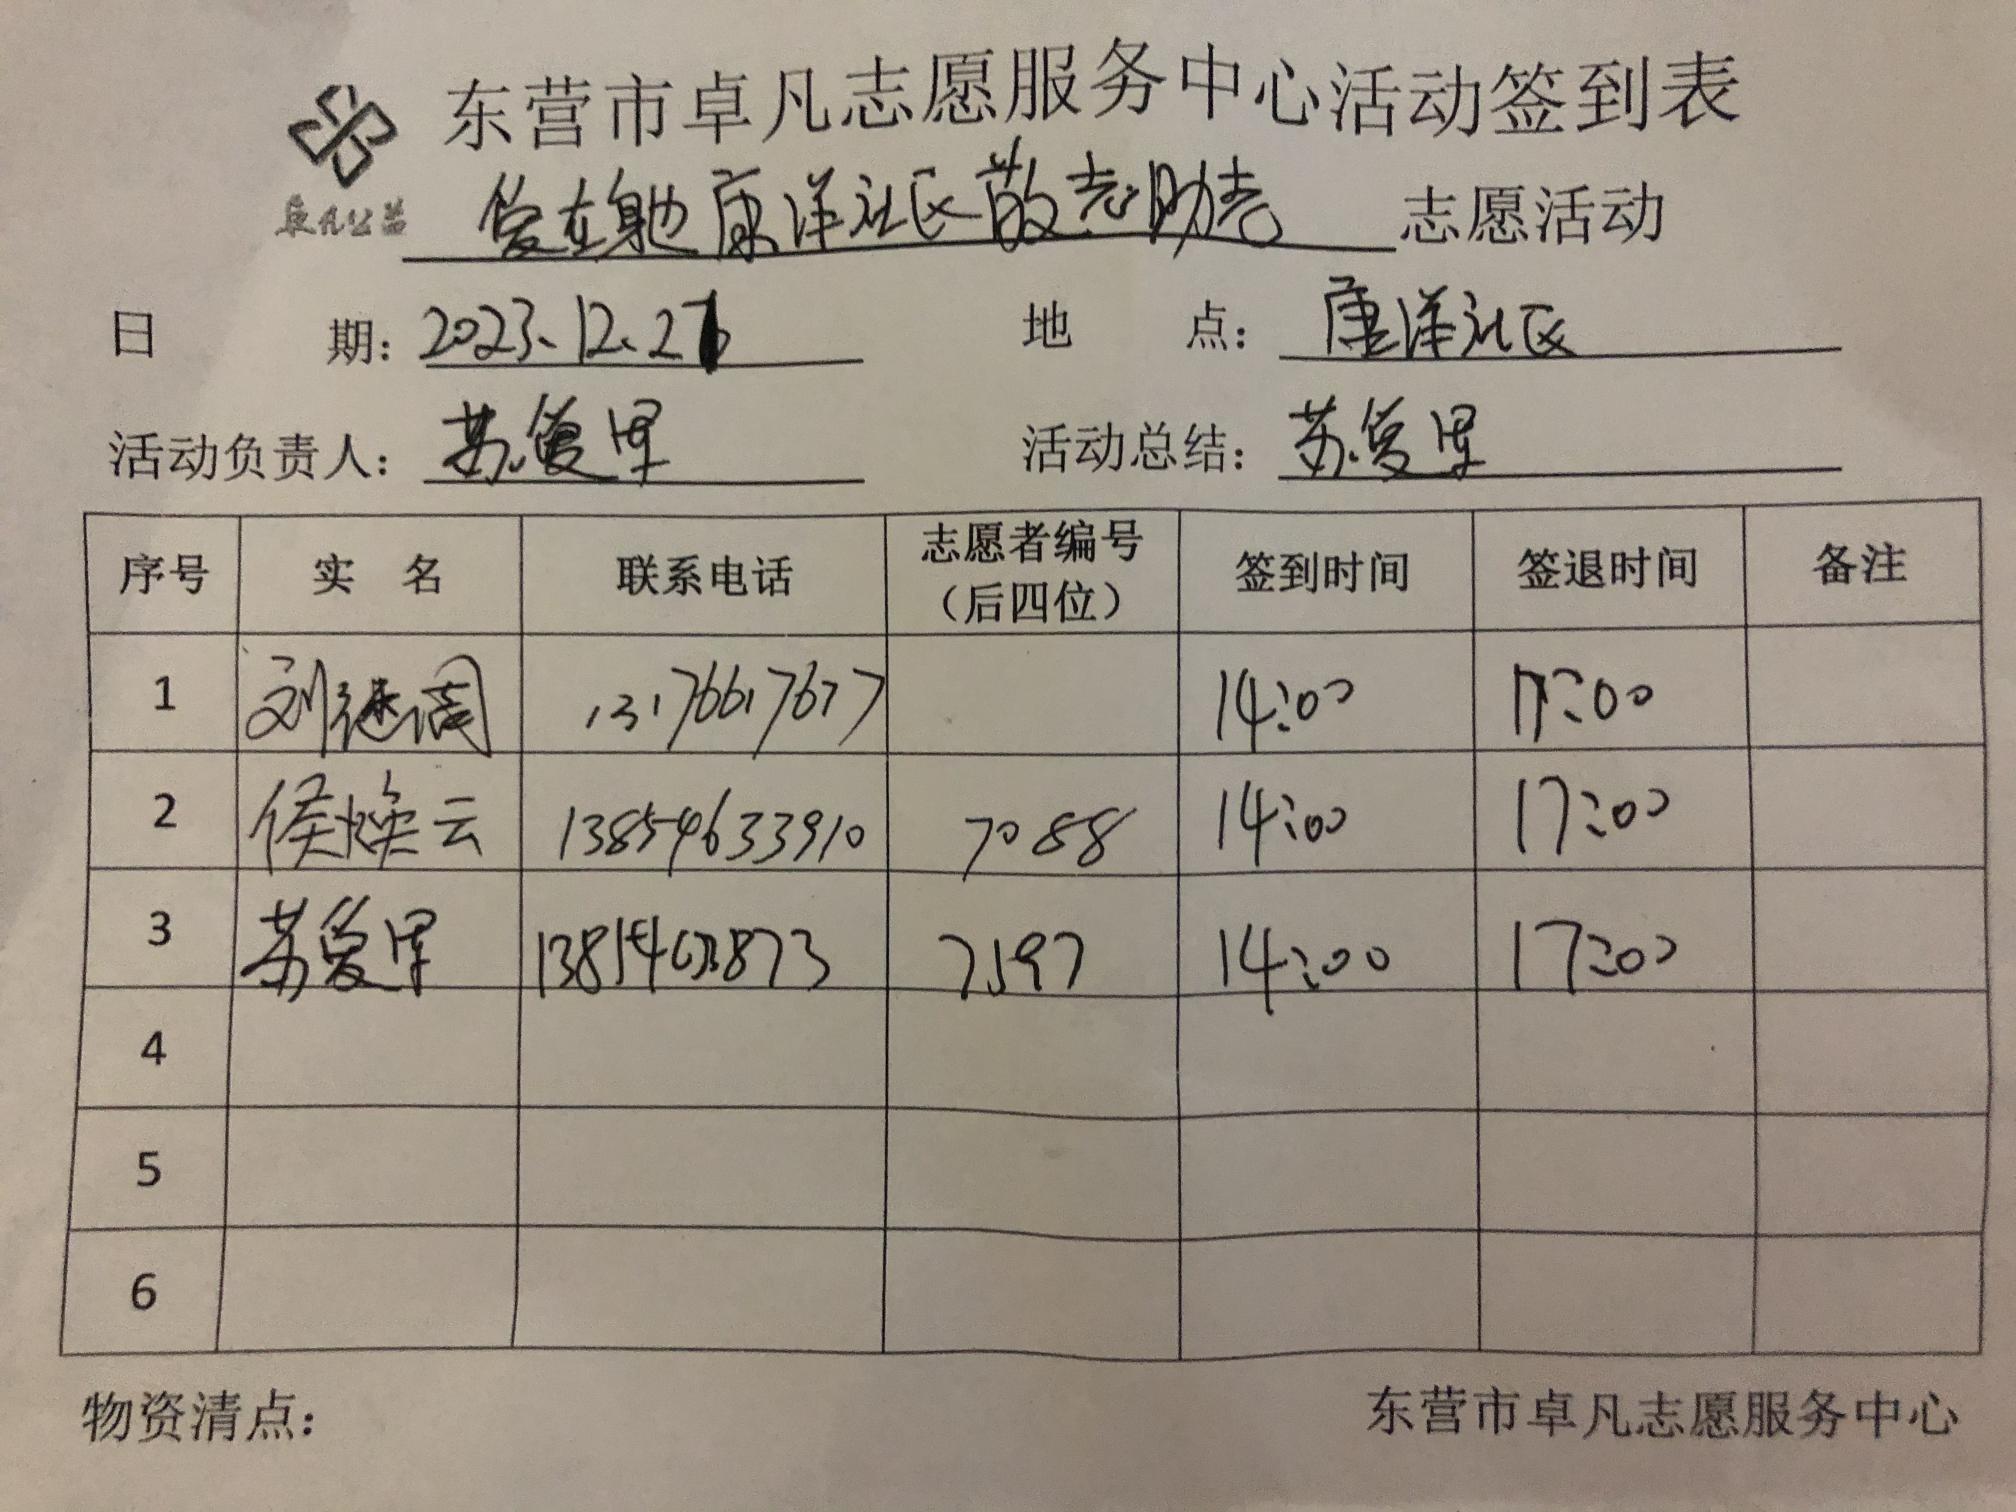 东营市卓凡志愿服务中心活动签到表
卓凡公益
爱在身边康洋社区敬老助老 志愿活动
日 期: 2023.12.27 地 点: 康洋社区
活动负责人: 苏爱军 活动总结: 苏爱军
序号 实 名 联系电话 志愿者编号（后四位） 签到时间 签退时间 备注
1 刘继周 13176617677 14:00 17:00
2 侯焕云 13854633910 7088 14:00 17:00
3 苏爱军 7597 14:00 17:00
4
5
6
物资清点: 东营市卓凡志愿服务中心